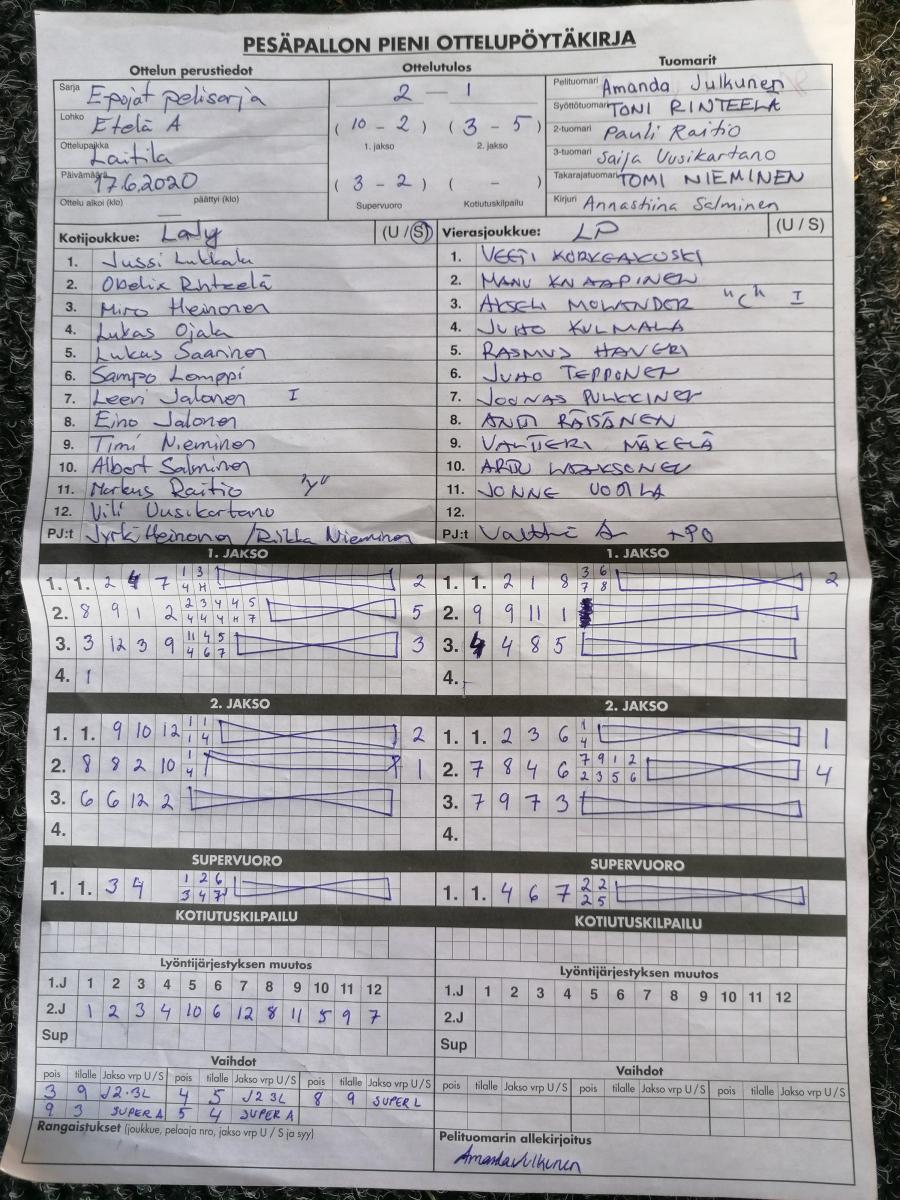 PESÄPALLON PIENI OTTELUPÖYTÄKIRJA
Ottelun perustiedot
Sarja E-pojat pelisarja
Lohko Etelä A
Ottelupaikka Laitila
Päivämäärä 17.6.2020
Ottelu alkoi (klo) — päättyi (klo)
Ottelutulos
2 — 1
( 10 - 2 ) ( 3 - 5 )
1. jakso 2. jakso
( 3 - 2 ) ( - )
Supervuoro Kotiutuskilpailu
Tuomarit
Pelituomari Amanda Julkunen
Syöttötuomari TONI RINTEELÄ
2-tuomari Pauli Raitio
3-tuomari Saija Uusikartano
Takarajatuomari TOMI NIEMINEN
Kirjuri Annastiina Salminen
Kotijoukkue: Laly (U / S)
1. Jussi Lukkala
2. Obelix Rinteelä
3. Miro Heinonen
4. Lukas Ojala
5. Lukas Saarinen
6. Sampo Lemppi
7. Leevi Jalonen I
8. Eino Jalonen
9. Timi Nieminen
10. Albert Salminen
11. Markus Raitio "y"
12. Vili Uusikartano
PJ:t Jyrki Heinonen / Riikka Nieminen
Vierasjoukkue: LP (U / S)
1. VEETI KORKEAKOSKI
2. MANU KNAAPINEN
3. AKSELI MOLANDER "C" I
4. JUHO KULMALA
5. RASMUS HAVERI
6. JUHO TEPPONEN
7. JOONAS PULKKINEN
8. ANTTI RÄISÄNEN
9. VALTTERI MÄKELÄ
10. ARTTU LAAKSONEN
11. JONNE UOTILA
12.
PJ:t +PO
1. JAKSO
1. 1. 2 4 7 1 3 2
4 H
2. 8 9 1 2 2 3 4 4 5 5
4 4 4 H 7
3. 3 12 3 9 11 4 5 3
4 6 7
4. 1
1. JAKSO
1. 1. 2 1 8 3 6 2
7 8
2. 9 9 11 1
3. 4 4 8 5
4.
2. JAKSO
1. 1. 9 10 12 1 1 2
1 4
2. 8 8 2 10 1 1
4
3. 6 6 12 2
4.
2. JAKSO
1. 1. 2 3 6 1 1
4
2. 7 8 4 6 7 9 1 2 4
2 3 5 6
3. 7 9 7 3
4.
SUPERVUORO
1. 1. 3 4 1 2 6
3 4 7
SUPERVUORO
1. 1. 4 6 7 2 2
2 5
KOTIUTUSKILPAILU
KOTIUTUSKILPAILU
Lyöntijärjestyksen muutos
1.J 1 2 3 4 5 6 7 8 9 10 11 12
2.J 1 2 3 4 10 6 12 8 11 5 9 7
Sup
Lyöntijärjestyksen muutos
1.J 1 2 3 4 5 6 7 8 9 10 11 12
2.J
Sup
Vaihdot
pois tilalle Jakso vrp U / S pois tilalle Jakso vrp U / S pois tilalle Jakso vrp U / S
3 9 J2.3L 4 5 J2 3L 8 9 SUPER L
9 3 SUPER A 5 4 SUPER A
Vaihdot
pois tilalle Jakso vrp U / S pois tilalle Jakso vrp U / S pois tilalle Jakso vrp U / S
Rangaistukset (joukkue, pelaaja nro, jakso vrp U / S ja syy)
Pelituomarin allekirjoitus
Amanda Julkunen